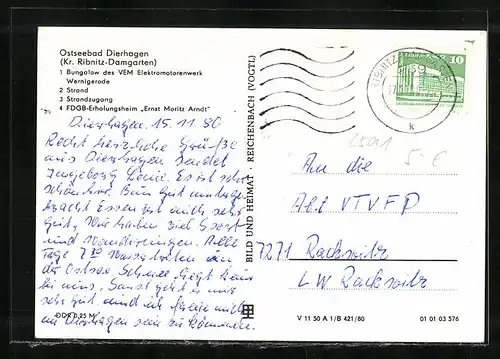 Ostseebad Dierhagen
(Kr. Ribnitz-Damgarten)
1 Bungalow des VEM Elektromotorenwerk
Wernigerode
2 Strand
3 Strandzugang
4 FDGB-Erholungsheim „Ernst Moritz Arndt"
Dierhagen, 15.11.80
Recht herzliche Grüße
aus Dierhagen sendet
Ingeborg Es ist sehr
schön hier. Bin gut
Essen ist auch sehr
gut, Wir haben viel Sport
und Wanderungen. Alle
Tage 7 30
der Ostsee Schnee liegt
bei uns. Sonst geht es mir
sehr gut und ich freue mich
in Dierhagen sein zu können.
DDR 0,25 M
BILD UND HEIMAT · REICHENBACH (VOGTL)
10
K
5.-€
An die
Abt VTVFP
7271 Rackwitz
LW Rackwitz
V 11 50 A 1/B 421/80
01 01 03 576